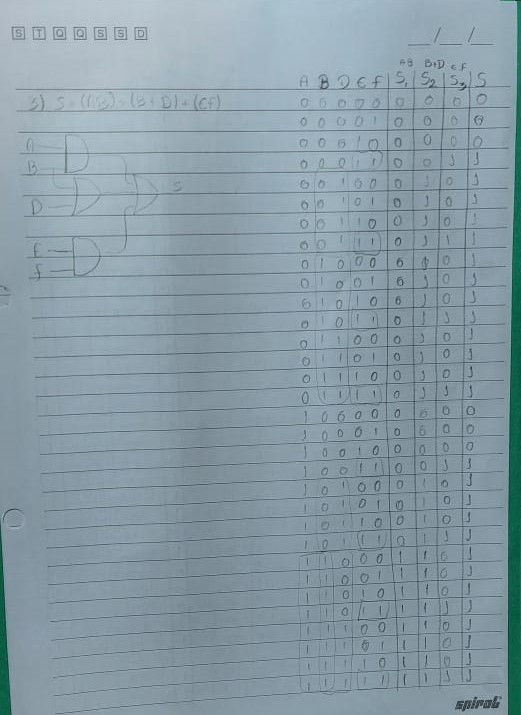 S T Q Q S S D
__/__/__
AB B+D EF
A B D E F S₁ S₂ S₃ S
3) S = (A.B) + (B+D) + (EF)
A
B
D
E
F
S
0 0 0 0 0 0 0 0 0
0 0 0 0 1 0 0 0 0
0 0 0 1 0 0 0 0 0
0 0 0 1 1 0 0 1 1
0 0 1 0 0 0 1 0 1
0 0 1 0 1 0 1 0 1
0 0 1 1 0 0 1 0 1
0 0 1 1 1 0 1 1 1
0 1 0 0 0 0 1 0 1
0 1 0 0 1 0 1 0 1
0 1 0 1 0 0 1 0 1
0 1 0 1 1 0 1 1 1
0 1 1 0 0 0 1 0 1
0 1 1 0 1 0 1 0 1
0 1 1 1 0 0 1 0 1
0 1 1 1 1 0 1 1 1
1 0 0 0 0 0 0 0 0
1 0 0 0 1 0 0 0 0
1 0 0 1 0 0 0 0 0
1 0 0 1 1 0 0 1 1
1 0 1 0 0 0 1 0 1
1 0 1 0 1 0 1 0 1
1 0 1 1 0 0 1 0 1
1 0 1 1 1 0 1 1 1
1 1 0 0 0 1 1 0 1
1 1 0 0 1 1 1 0 1
1 1 0 1 0 1 1 0 1
1 1 0 1 1 1 1 1 1
1 1 1 0 0 1 1 0 1
1 1 1 0 1 1 1 0 1
1 1 1 1 0 1 1 0 1
1 1 1 1 1 1 1 1 1
spiral